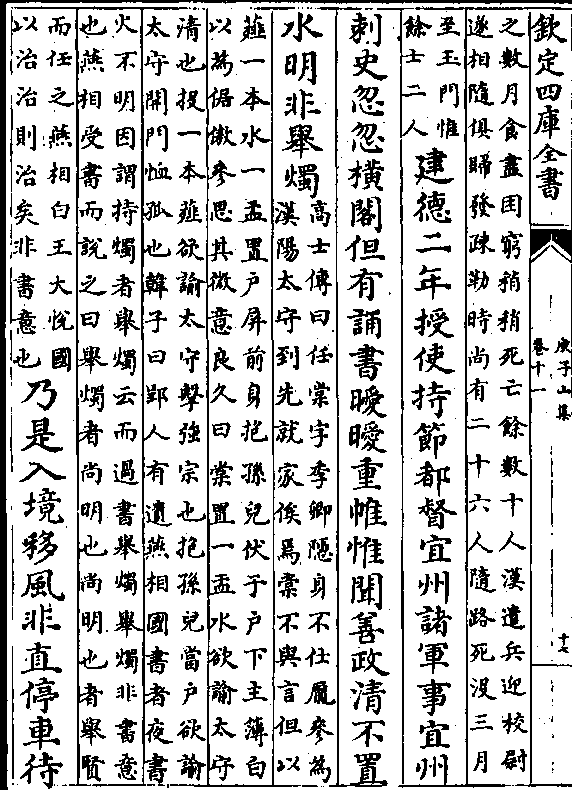 欽定四庫全書
庚子山集
卷十一
十七
之數月食盡困窮稍稍死亡餘數十人漢遣兵迎校尉
遂相隨俱歸發疎勒時尚有二十六人隨路死没三月
至玉門惟
餘士二人
建德二年授使持節都督宜州諸軍事宜州
刺史忽忽横閣但有誦書曖曖重帷惟聞善政清不置
水明非舉燭
高士傳曰任棠字季卿隱身不仕龎參為
漢陽太守到先就家俟焉棠不與言但以
薤一本水一盂置户屏前身抱孫兒伏于户下主簿白
以為倨傲參思其微意良久曰棠置一盂水欲諭太守
清也投一本薤欲諭太守擊強宗也抱孫兒當户欲諭
太守開門恤孤也韓子曰郢人有遺燕相國書者夜書
火不明因謂持燭者舉燭云而過書舉燭舉燭非書意
也燕相受書而說之曰舉燭者尚明也尚明也者舉賢
而任之燕相白王大悦國
以治治則治矣非書意也
乃是入境移風非直停車待